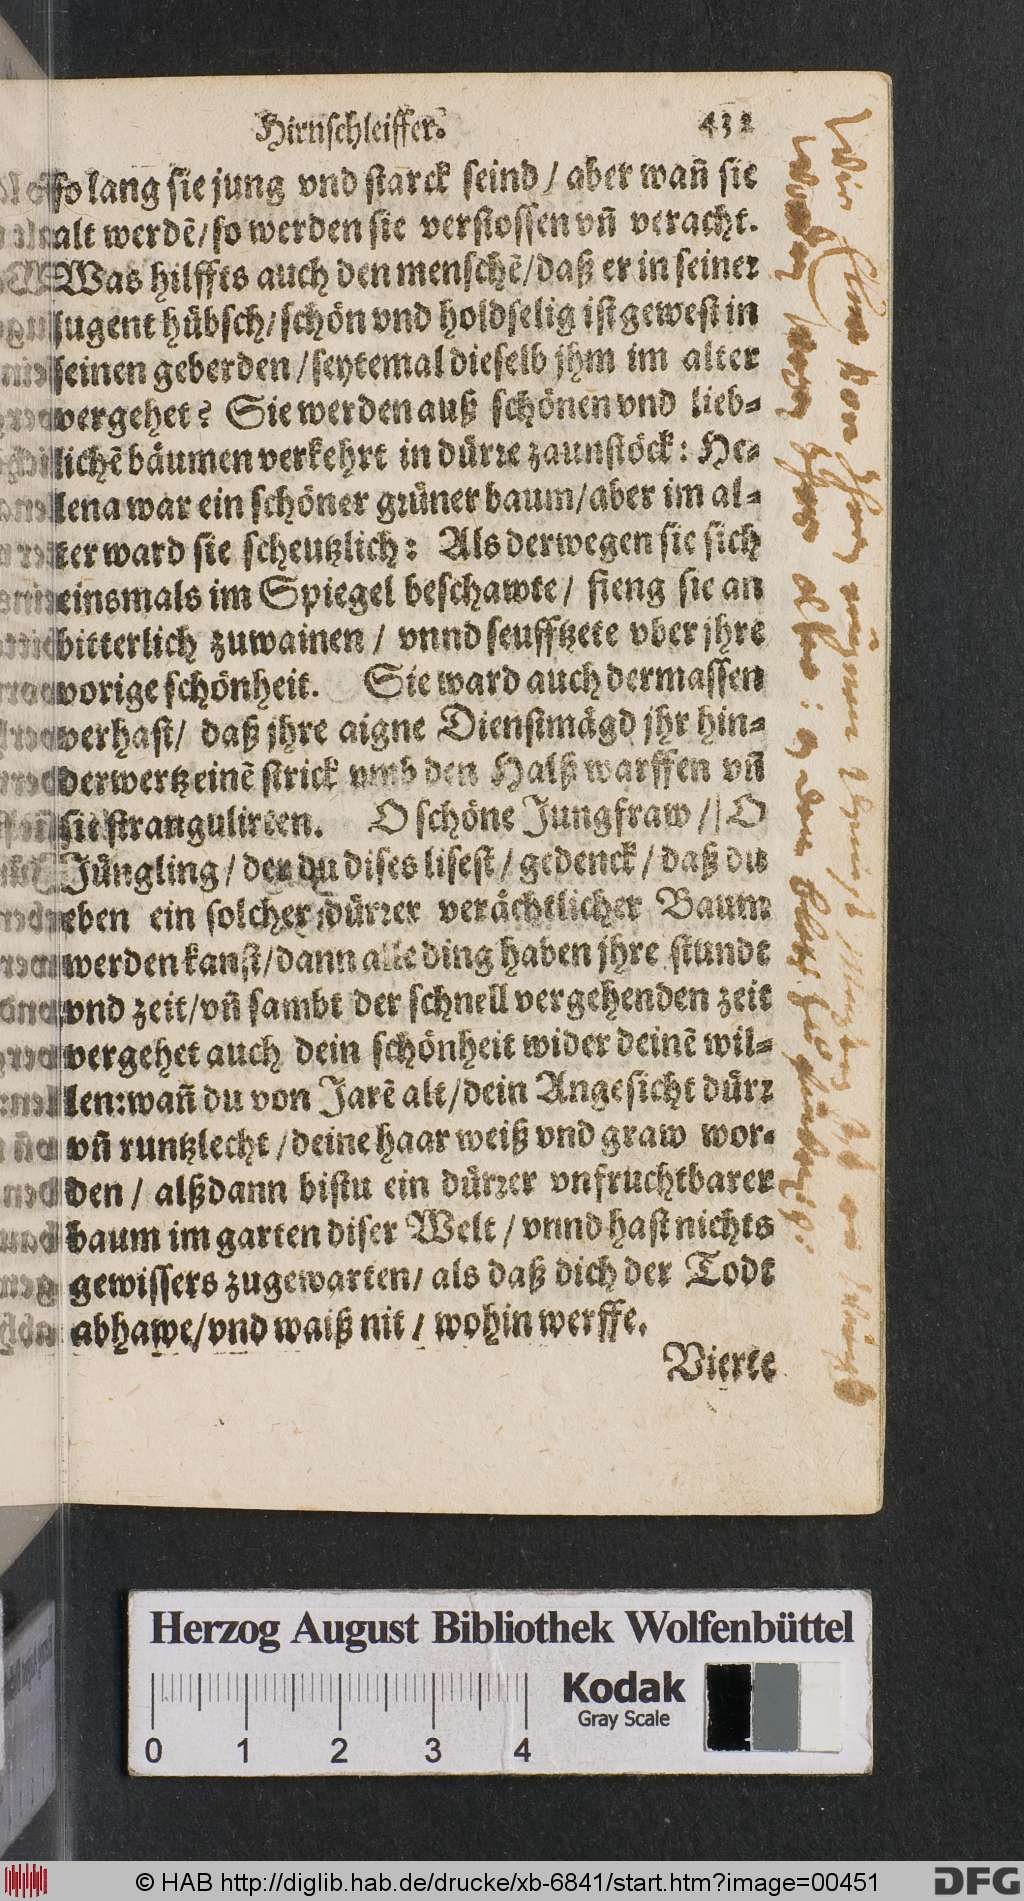 Hirnschleiffer. 432
so lang sie jung vnd starck seind / aber wañ sie
alt werdẽ / so werden sie verstossen vñ veracht.
Was hilffts auch den menschẽ / daß er in seiner
jugent hübsch / schön vnd holdselig ist gewest in
seinen geberden / seytemal dieselb jhm im alter
vergehet? Sie werden auß schönen vnd lieb-
lichẽ bäumen verkehrt in dürre zaunstöck: He-
lena war ein schöner grüner baum / aber im al-
ter ward sie scheutzlich: Als derwegen sie sich
einsmals im Spiegel beschawte / fieng sie an
bitterlich zuwainen / vnnd seufftzete vber jhre
vorige schönheit. Sie ward auch dermassen
verhast / daß jhre aigne Dienstmägd jhr hin-
derwertz einẽ strick vmb den Halß warffen vñ
sie strangulirten. O schöne Jungfraw / O
Jüngling / der du dises lisest / gedenck / daß du
eben ein solcher dürrer verächtlicher Baum
werden kanst / dann alle ding haben jhre stundt
vnd zeit / vñ sambt der schnell vergehenden zeit
vergehet auch dein schönheit wider deinẽ wil-
len: wañ du von Jarẽ alt / dein Angesicht dürr
vñ runtzlecht / deine haar weiß vnd graw wor-
den / alßdann bistu ein dürrer vnfruchtbarer
baum im garten diser Welt / vnnd hast nichts
gewissers zugewarten / als daß dich der Todt
abhawe / vnd waiß nit / wohin werffe.
Vierte
Herzog August Bibliothek Wolfenbüttel
Kodak
Gray Scale
0 1 2 3 4
© HAB http://diglib.hab.de/drucke/xb-6841/start.htm?image=00451
DFG